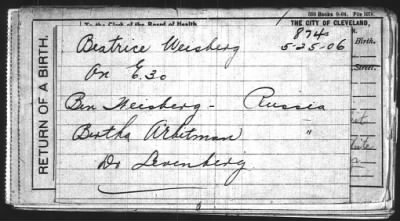 500 Books 9-04. File 1058.
To the Clerk of the Board of Health
THE CITY OF CLEVELAND,
RETURN OF A BIRTH.
874
Beatrice Weisberg 5-25-06
On E. 30
Birth.
Ben Weisberg - Russia
Bertha Arbitman "
Dr Levenberg